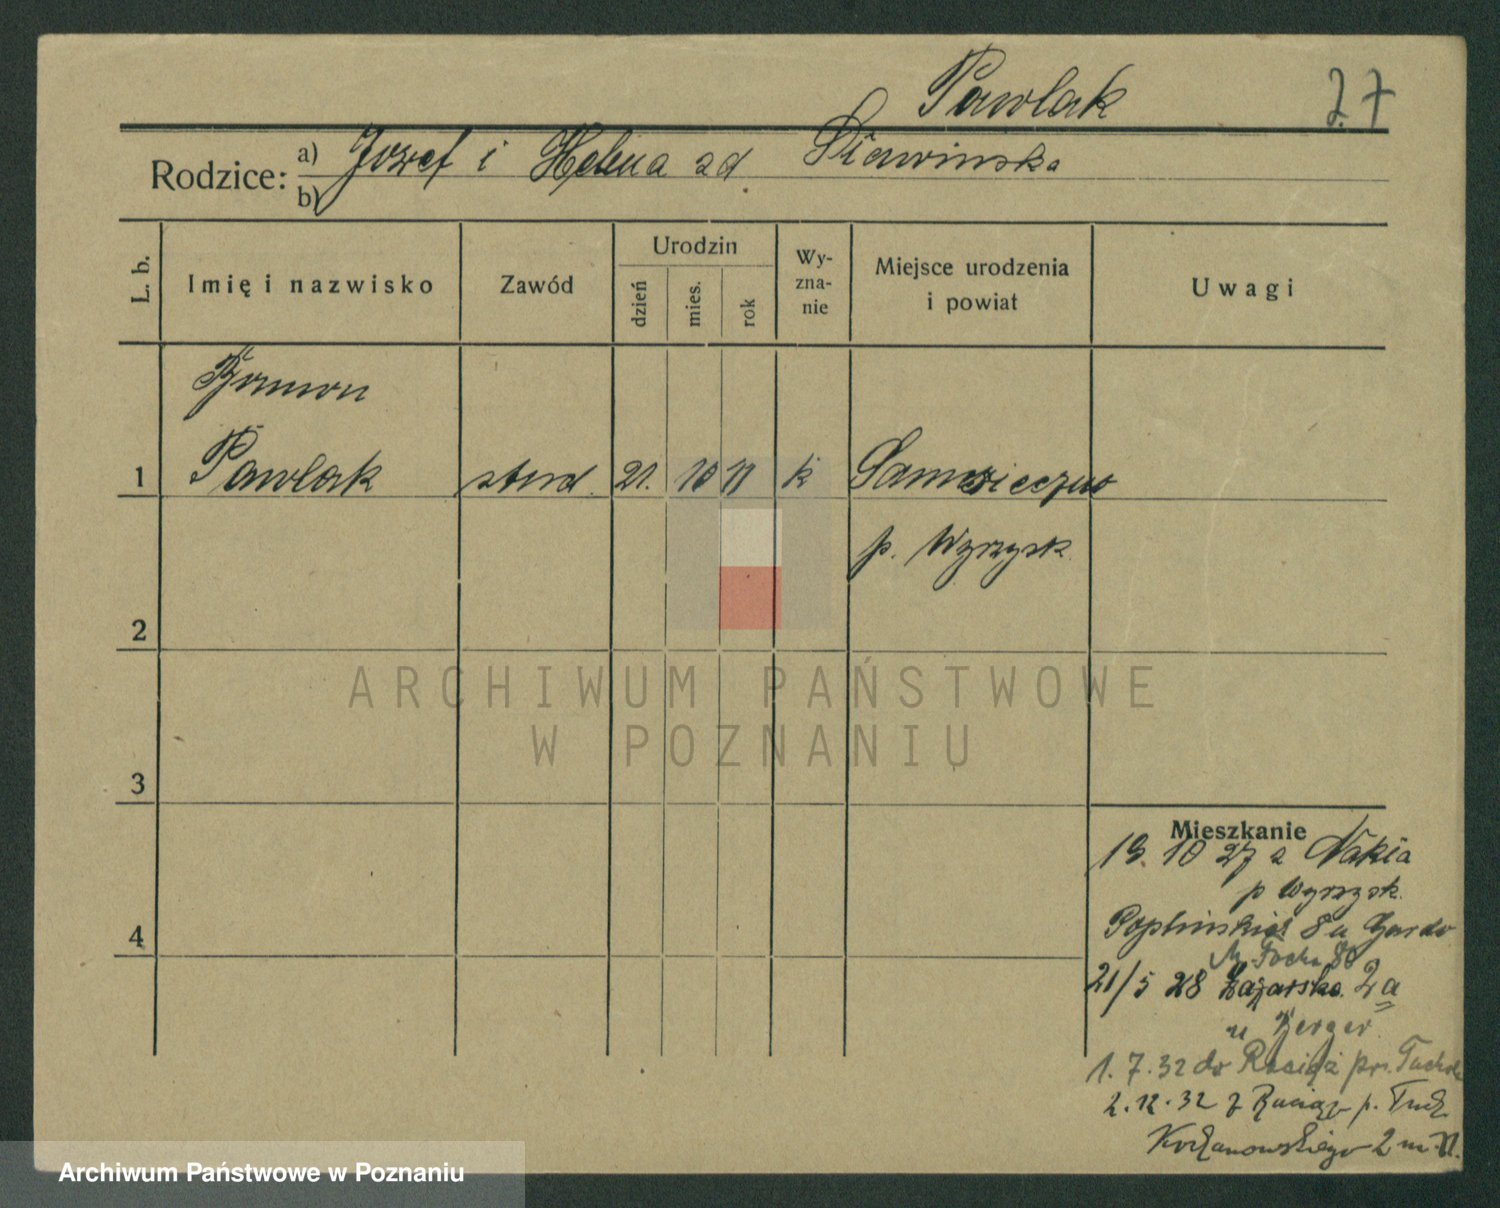 Pawlak
27
Rodzice:
a) Józef i Helena zd Sławinska
b)
L. b.
Imię i nazwisko
Zawód
Urodzin
dzień
mies.
rok
Wy-
zna-
nie
Miejsce urodzenia
i powiat
Uwagi
Brunon
1 Pawlak stud. 21. 10 11 k Samosieczno
p. Wyrzysk
2
3
4
ARCHIWUM PAŃSTWOWE
W POZNANIU
Mieszkanie
19. 10 27 z Nakła
p Wyrzysk.
Poplińskich 8 u
M. Focha 80
21/5 28 Łazarska 2a
u Berger
1. 7. 32 do Raciąż pow. Tuchola
2. 12. 32 z Raciąż p. Tuch.
Kochanowskiego 2 m. 11.
Archiwum Państwowe w Poznaniu